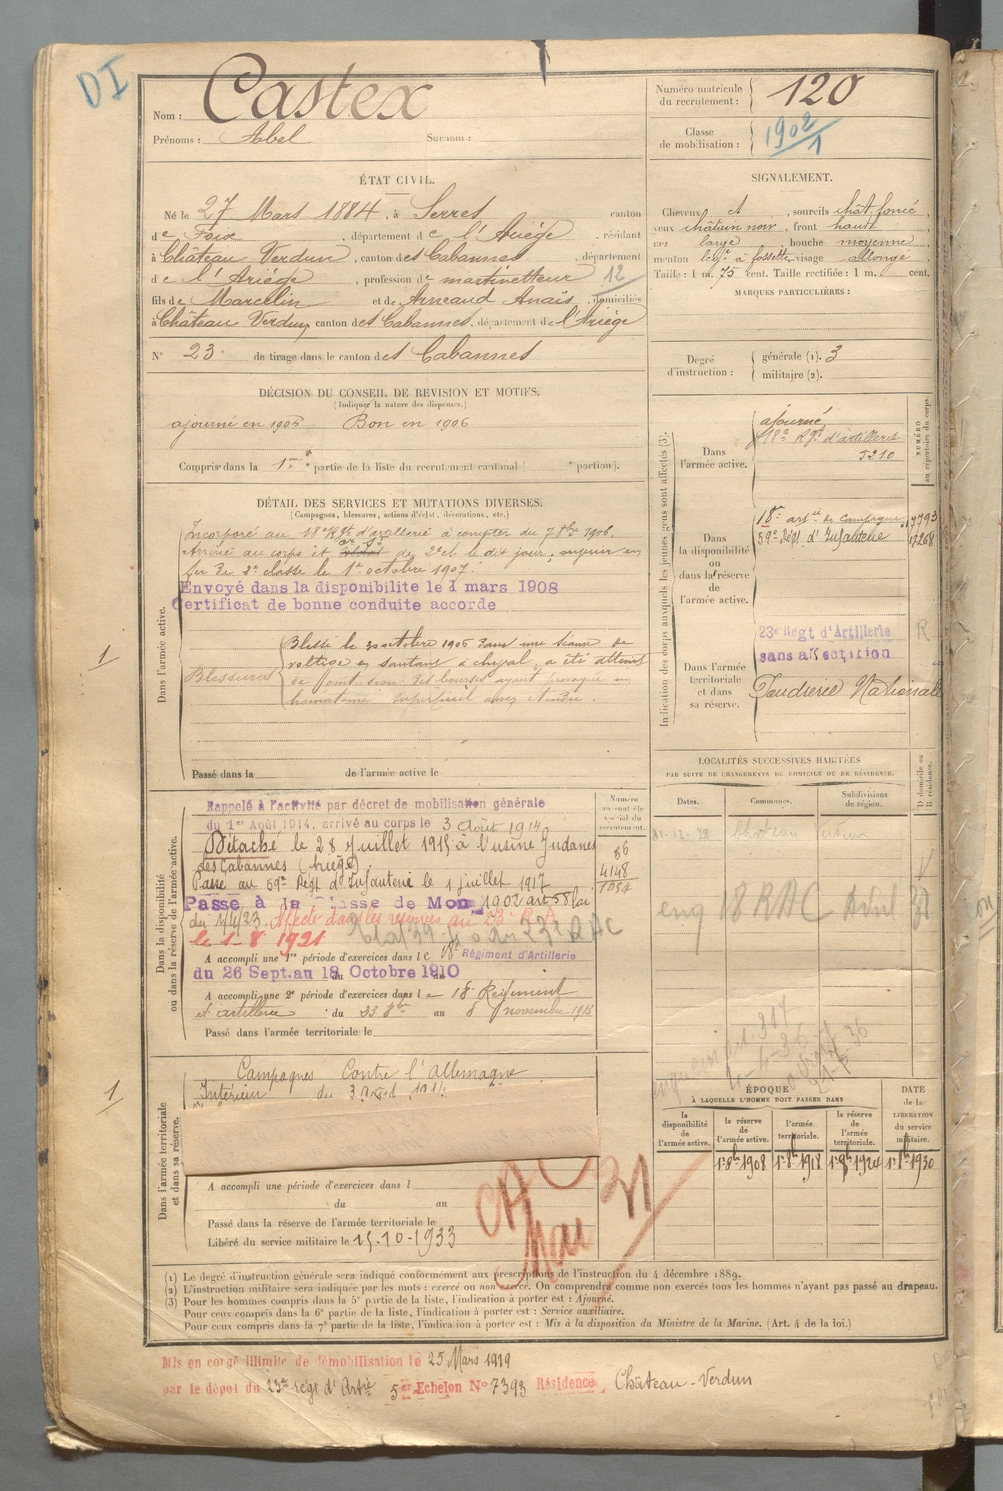 DI
Nom : Castex
Prénoms : Abel Surnom :
Numéro matricule du recrutement : 120
Classe de mobilisation : 1902/1
ÉTAT CIVIL.
Né le 27 Mars 1884, à Serres canton
de Foix, département de l'Ariège, résidant
à Château Verdun, canton des Cabannes, département
de l'Ariège, profession de martinetteur 12
fils de Marcelin et de Arneaud Anaïs, domiciliés
à Château Verdun, canton des Cabannes, département de l'Ariège
N° 23. de tirage dans le canton des Cabannes
SIGNALEMENT.
Cheveux ct, sourcils chât. foncé,
yeux châtain noir, front haut
nez large, bouche moyenne
menton à fossette, visage allongé
Taille : 1 m. 75 cent. Taille rectifiée : 1 m. cent.
MARQUES PARTICULIÈRES :
Degré d'instruction : générale (1). 3
militaire (2).
DÉCISION DU CONSEIL DE REVISION ET MOTIFS.
(Indiquer la nature des dispenses.)
ajourné en 1905 Bon en 1906
Compris dans la 1re partie de la liste du recrutement cantonal ( e portion).
DÉTAIL DES SERVICES ET MUTATIONS DIVERSES.
(Campagnes, blessures, actions d'éclat, décorations, etc.)
Dans l'armée active.
Incorporé au 18e Rgt d'artillerie à compter du 7 8bre 1906.
Arrivé au corps et de 2e cl le dit jour,
de 2e classe le 1er octobre 1907.
Envoyé dans la disponibilite le 1 mars 1908
Certificat de bonne conduite accorde
1
Blessures
Blessé le 30 octobre 1906 dans une séance de
voltige en sautant à cheval, a été atteint
de contusion des bourses ayant provoqué un
hématome superficiel assez étendu.
Passé dans la de l'armée active le
Indication des corps auxquels les jeunes gens sont affectés (3).
NUMÉRO au répertoire du corps.
Dans l'armée active.
ajourné
18e Rgt d'artillerie
5210
Dans la disponibilité ou dans la réserve de l'armée active.
18e artie de Campagne
59e Régt d'Infanterie
Dans l'armée territoriale et dans sa réserve.
23e Regt d'Artillerie R
sans affectition
Poudrerie Nationale
LOCALITÉS SUCCESSIVES HABITÉES
PAR SUITE DE CHANGEMENTS DE DOMICILE OU DE RÉSIDENCE.
Dates. Communes. Subdivisions de région. D domicile ou R résidence.
Château Verdun
18 RAC Avril
Dans la disponibilité ou dans la réserve de l'armée active.
Rappelé à l'activité par décret de mobilisation générale
du 1er Août 1914, arrivé au corps le 3 Août 1914
Détaché le 28 Juillet 1915 à l'usine
Les Cabannes (Ariège)
Passé au 59e Régt d'Infanterie le 1 juillet 1917
Passé à la Classe de Mob 1902 art 58 loi
du 1/4/23. Affecté dans les réserves au 23e R.A.
le 1-8 1921
86
4148
1054
A accompli une 1re période d'exercices dans le 18e Régiment d'Artillerie
du 26 Sept. au 18 Octobre 1910
A accompli une 2e période d'exercices dans le 18e Régiment
d'artillerie du 23 8bre au 8 novembre
Passé dans l'armée territoriale le
1
Dans l'armée territoriale et dans sa réserve.
Campagnes Contre l'Allemagne
Intérieur du 3 août 1914
A accompli une période d'exercices dans l
du au
Passé dans la réserve de l'armée territoriale le
Libéré du service militaire le 15-10-1933
Mai 31
ÉPOQUE
À LAQUELLE L'HOMME DOIT PASSER DANS
la disponibilité de l'armée active. la réserve de l'armée active. l'armée territoriale. la réserve de l'armée territoriale.
DATE de la LIBÉRATION du service militaire.
1er 8bre 1908 1er 8bre 1918 1er 8bre 1924 1er 8bre 1930
(1) Le degré d'instruction générale sera indiqué conformément aux prescriptions de l'instruction du 4 décembre 1889.
(2) L'instruction militaire sera indiquée par les mots : exercé ou non exercé. On comprendra comme non exercés tous les hommes n'ayant pas passé au drapeau.
(3) Pour les hommes compris dans la 5e partie de la liste, l'indication à porter est : Ajourné.
Pour ceux compris dans la 6e partie de la liste, l'indication à porter est : Service auxiliaire.
Pour ceux compris dans la 7e partie de la liste, l'indication à porter est : Mis à la disposition du Ministre de la Marine. (Art. 4 de la loi.)
Mis en congé illimité de démobilisation le 25 Mars 1919
par le dépot du 23e régt d'Artie 5e Echelon N° 7393 Résidence, Château-Verdun